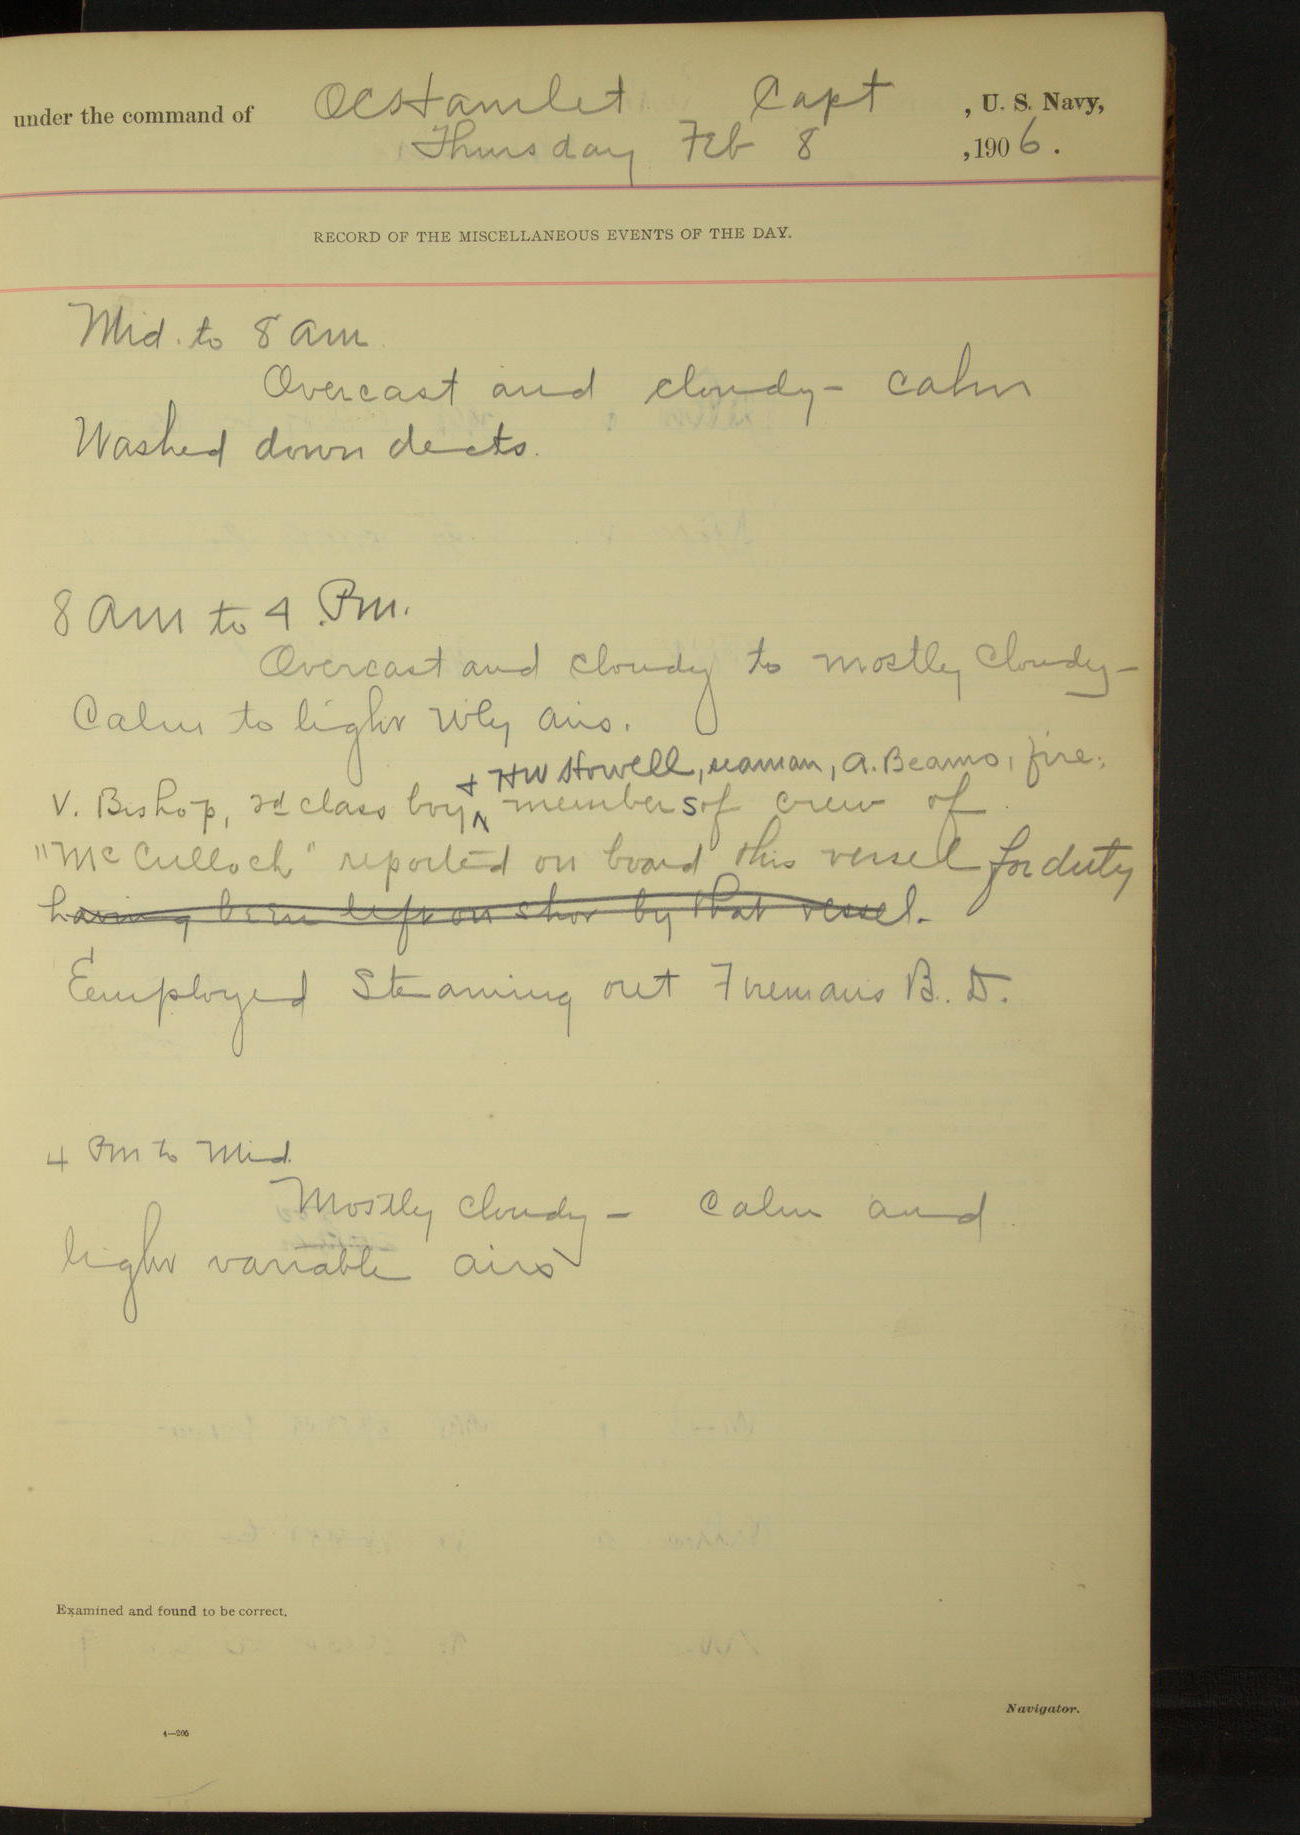 under the command of OCS Hamlet Capt , U. S. Navy,
Thursday Feb 8 , 1906.
RECORD OF THE MISCELLANEOUS EVENTS OF THE DAY.
Mid. to 8 am
Overcast and cloudy - calm
Washed down decks.
8 am to 4 Pm.
Overcast and cloudy to mostly cloudy -
Calm to light Wly airs.
+ HW Howell, seaman, A. Beams, fire.
V. Bishop, 3d class boy ^ members of crew of
"McCulloch" reported on board this vessel for duty
having been left on shor by that vessel.
Employed Steaming out Firemans B. D.
4 Pm to Mid.
Mostly cloudy - Calm and
light variable airs
Examined and found to be correct.
Navigator.
4—205